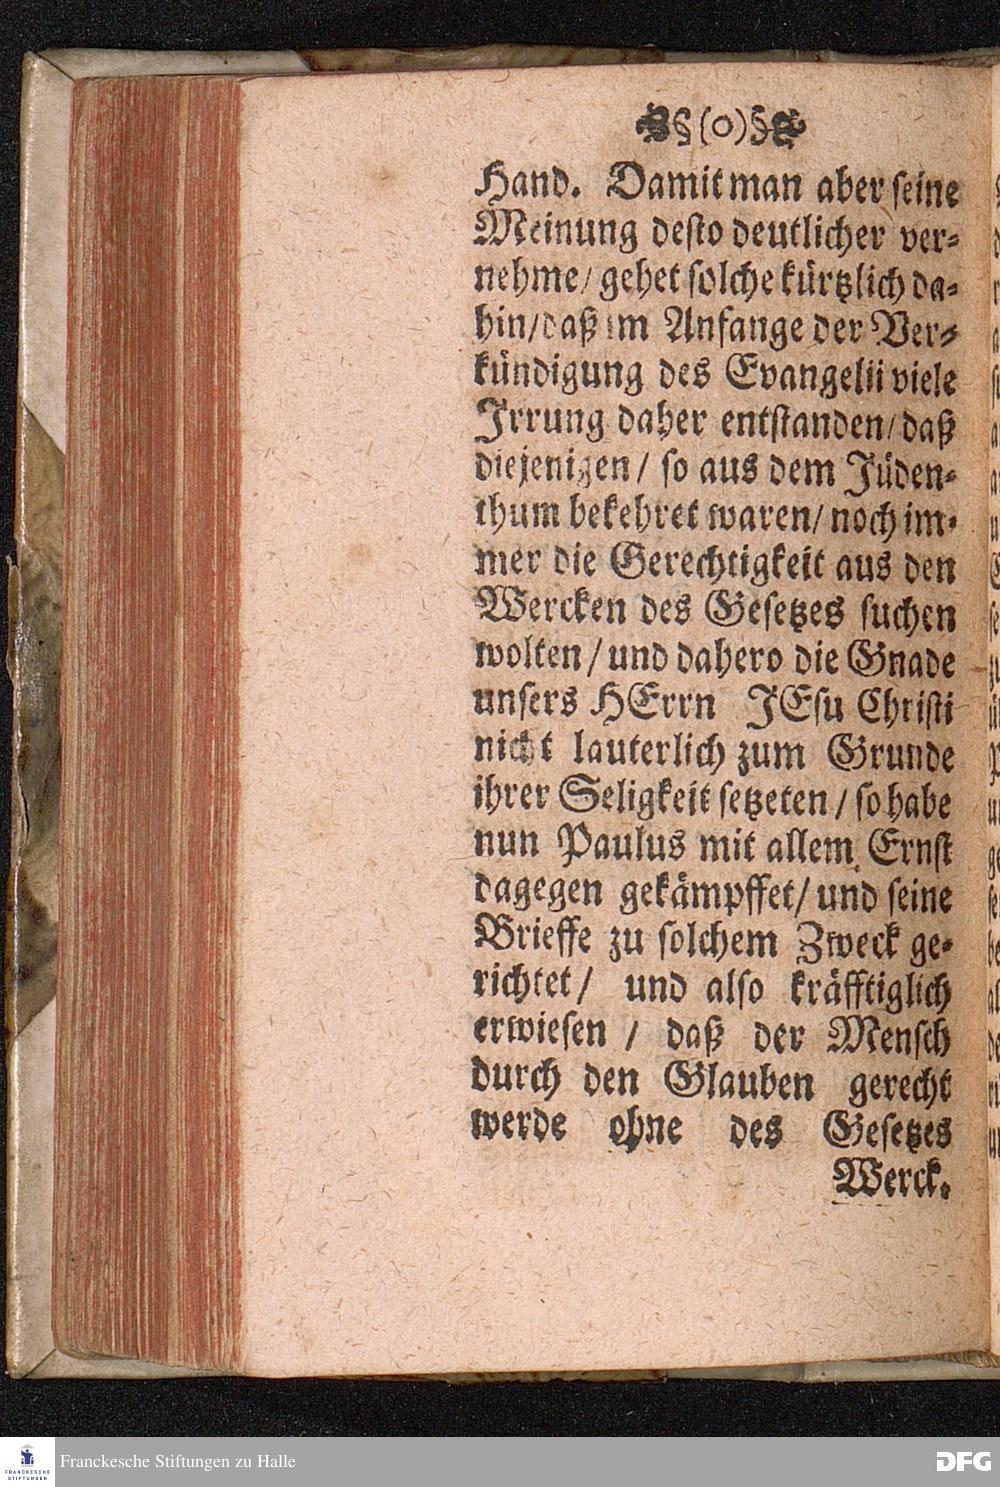 §(o)§
Hand. Damit man aber seine
Meinung desto deutlicher ver-
nehme/ gehet solche kürtzlich da-
hin/ daß im Anfange der Ver-
kündigung des Evangelii viele
Irrung daher entstanden/ daß
diejenigen/ so aus dem Jüden-
thum bekehret waren/ noch im-
mer die Gerechtigkeit aus den
Wercken des Gesetzes suchen
wolten/ und dahero die Gnade
unsers HErrn JEsu Christi
nicht lauterlich zum Grunde
ihrer Seligkeit setzeten/ so habe
nun Paulus mit allem Ernst
dagegen gekämpffet/ und seine
Brieffe zu solchem Zweck ge-
richtet/ und also kräfftiglich
erwiesen / daß der Mensch
durch den Glauben gerecht
werde ohne des Gesetzes
Werck.
FRANCKESCHE
STIFTUNGEN
Franckesche Stiftungen zu Halle
DFG